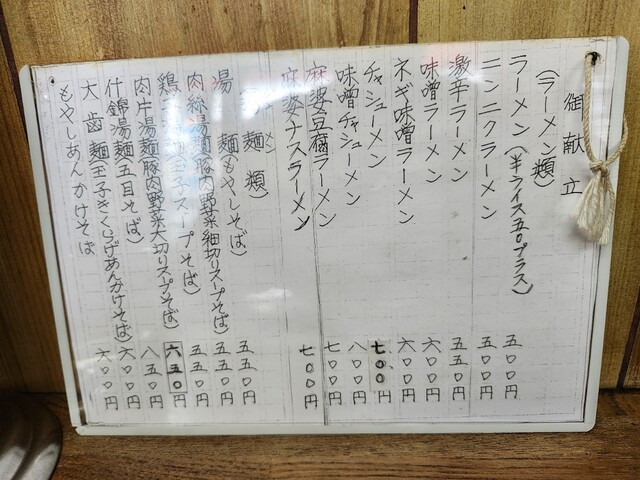 御献立
(ラーメン類)
ラーメン(半ライス五〇プラス) 五〇〇円
ニンニクラーメン 五〇〇円
激辛ラーメン 五五〇円
味噌ラーメン 六〇〇円
ネギ味噌ラーメン 六〇〇円
チャシューメン 七〇〇円
味噌チャシューメン 八〇〇円
麻婆豆腐ラーメン 七〇〇円
麻婆ナスラーメン 七〇〇円
麺類)
湯麺(もやしそば) 五五〇円
肉絲湯麺(豚肉野菜細切りスープそば) 五五〇円
鶏 麺(玉子スープそば) 五五〇円
肉片湯麺(豚肉野菜大切りスープそば) 六五〇円
什錦湯麺(五目そば) 八五〇円
大歯麺(玉子きくらげあんかけそば) 六〇〇円
もやしあんかけそば 六〇〇円